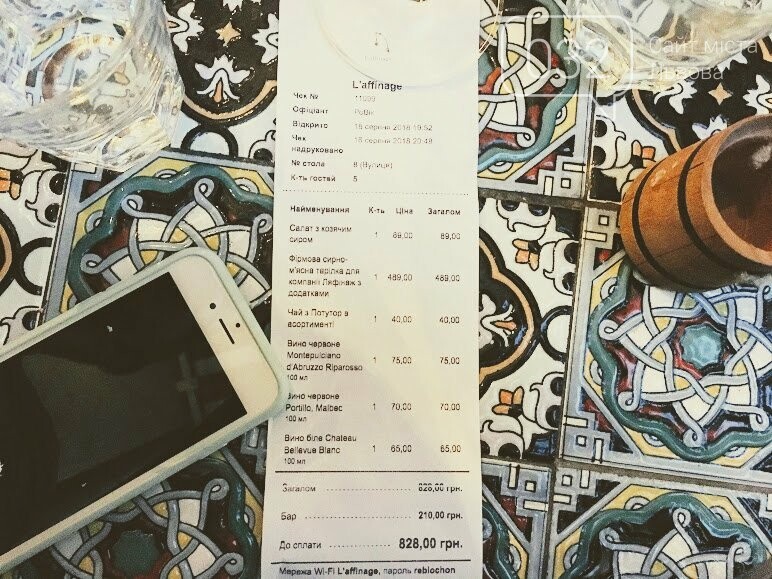 032
Сайт міста
Львова
L'affinage
Чек № 11099
Офіціант
Відкрито 16 серпня 2018 19:52
Чек 16 серпня 2018 20:48
надруковано
№ стола 8 (Вулиця)
К-ть гостей 5
Найменування К-ть Ціна Загалом
Салат з козячим
сиром 1 89,00 89,00
Фірмова сирно-
м'ясна тарілка для
компанії Ляфінаж з 1 489,00 489,00
додатками
Чай з Потутор в
асортименті 1 40,00 40,00
Вино червоне
Montepulciano 1 75,00 75,00
d'Abruzzo Riparosso
100 мл
Вино червоне
Portillo, Malbec 1 70,00 70,00
100 мл
Вино біле Chateau
Bellevue Blanc 1 65,00 65,00
100 мл
Загалом 828,00 грн.
Бар 210,00 грн.
До сплати 828,00 грн.
Мережа Wi-Fi L'affinage, пароль reblochon